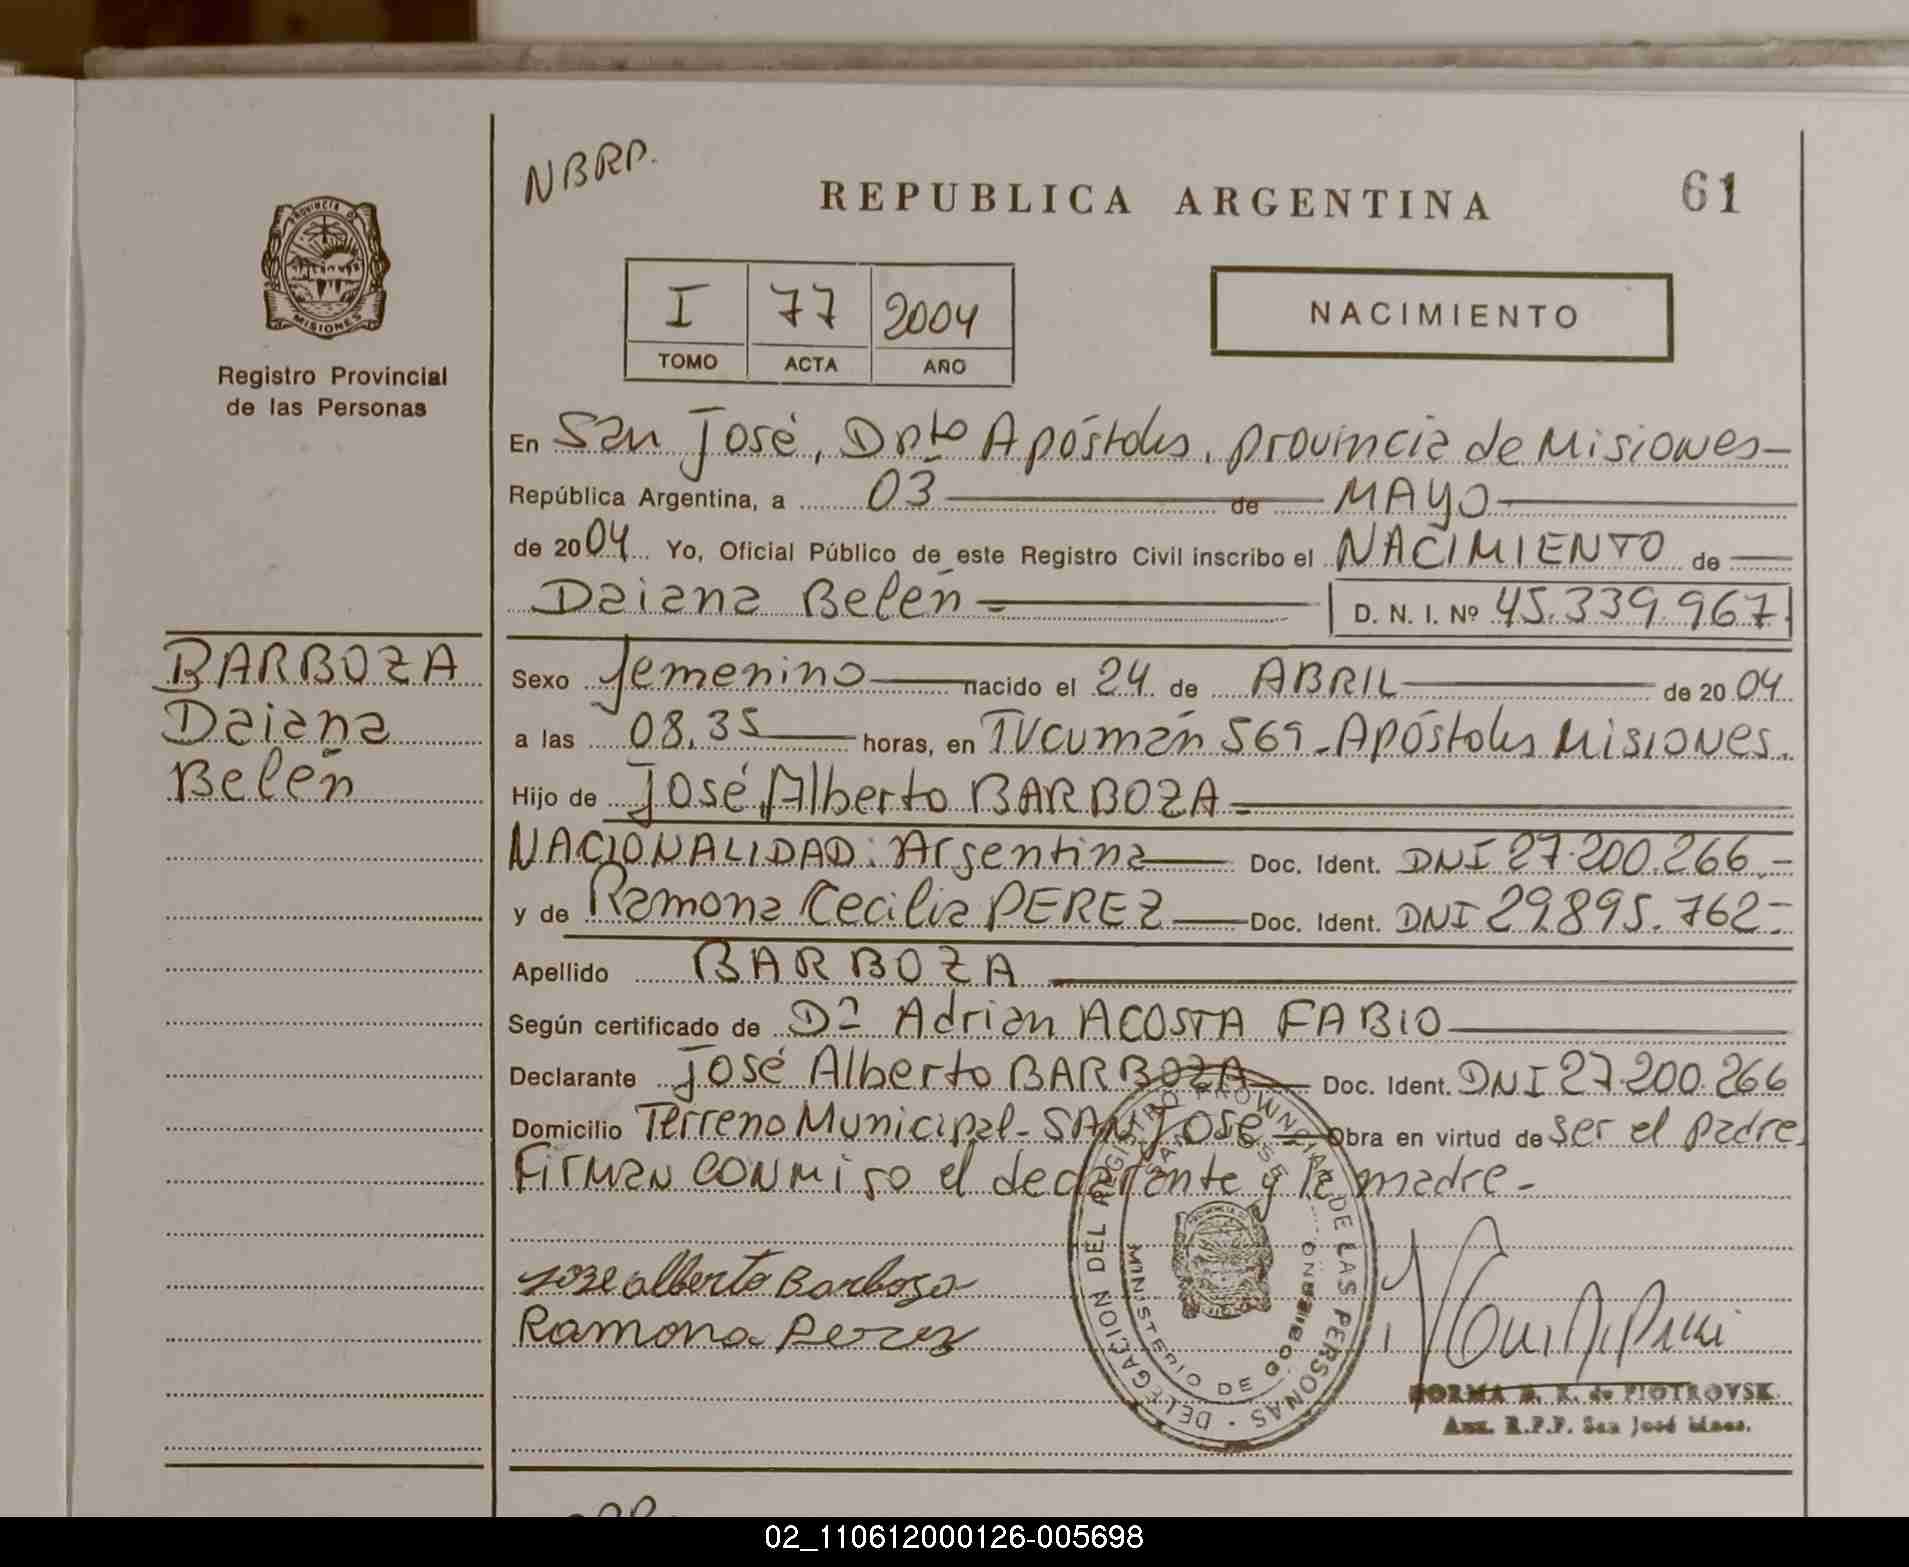 NBRP.
REPUBLICA ARGENTINA
61
PROVINCIA DE
MISIONES
Registro Provincial
de las Personas
I 77 2004
TOMO ACTA AÑO
NACIMIENTO
En San José, Dpto Apóstoles, provincia de Misiones-
República Argentina, a 03 de MAYO
de 2004 Yo, Oficial Público de este Registro Civil inscribo el NACIMIENTO de
Daiana Belén D. N. I. Nº 45.339.967
BARBOZA
Daiana
Belén
Sexo femenino nacido el 24 de ABRIL de 2004
a las 08,35 horas, en Tucumán 569-Apóstoles Misiones.
Hijo de José Alberto BARBOZA
NACIONALIDAD: Argentina Doc. Ident. DNI 27.200.266.-
y de Ramona Cecilia PEREZ Doc. Ident. DNI 29.895.762-
Apellido BARBOZA
Según certificado de Dº Adrian ACOSTA FABIO
Declarante José Alberto BARBOZA Doc. Ident. DNI 27.200.266
Domicilio Terreno Municipal-SAN JOSE Obra en virtud de ser el padre.
Firman conmigo el declarante y la madre-
Jose alberto Barboza
Ramona Perez
DELEGACION DEL REGISTRO PROVINCIAL DE LAS PERSONAS
SAN JOSE
MINISTERIO DE GOBIERNO
NORMA B. K. de PIOTROVSK
Aux. R.P.P. San José Mnes.
02_110612000126-005698